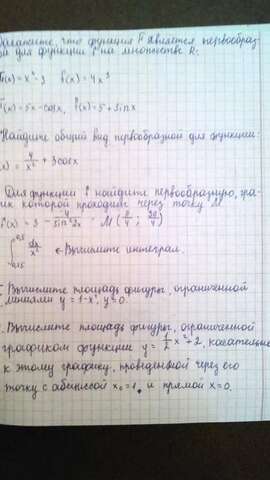 Докажите, что функция F является первообраз-
й для функции f на множестве R:
F(x) = x⁴-3 f(x) = 4x³
F(x) = 5x - cosx, f(x) = 5 + sinx
Найдите общий вид первообразной для функции:
(x) = 4/x² + 3cosx
Для функции f найдите первообразную, гра-
ик которой проходит через точку M
f(x) = 3 - 4/sin²2x M( ; 3π/4)
∫ dx/x² ← Вычислите интеграл.
Вычислите площадь фигуры, ограниченной
линиями y = 1-x², y=0.
Вычислите площадь фигуры, ограниченной
графиком функции y = 1/2x²+2, касательной
к этому графику, проведённой через его
точку с абсциссой x₀=1, и прямой x=0.